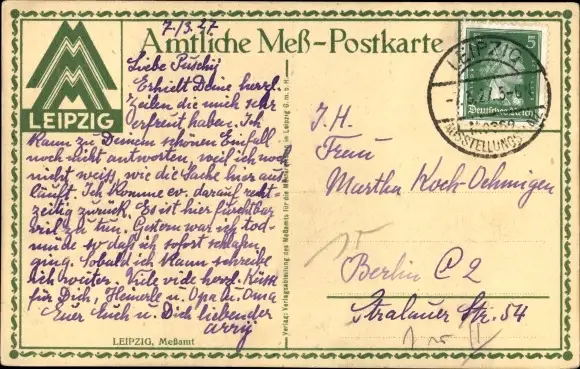 7/3.27.
Amtliche Meß-Postkarte
LEIPZIG
Liebe Puschy
Erhielt Deine herzl.
Zeilen die mich sehr
erfreut haben. Ich
kann zu Deinem schönen Einfall
noch nicht antworten, weil ich noch
nicht weiss, wie die Sache hier aus
läuft. Ich komme ev. darauf recht-
zeitig zurück. Es ist hier furchtbar
viel zu tun. Gestern war ich tod-
müde so daß ich sofort schlafen
ging. Sobald ich kann schreibe
ich weiter. Viele viele herzl. Küsse
für Dich, Heinerle u. Opa u. Oma
Euer Euch u. Dich liebender
LEIPZIG, Meßamt
Verlag: Verlagsabteilung des Meßamts für die Mustermessen in Leipzig G.m.b.H.
LEIPZIG
5
Deutsches Reich
I. H.
Frau
Martha Koch-Oehmigen
Berlin C 2
Stralauer Str. 54